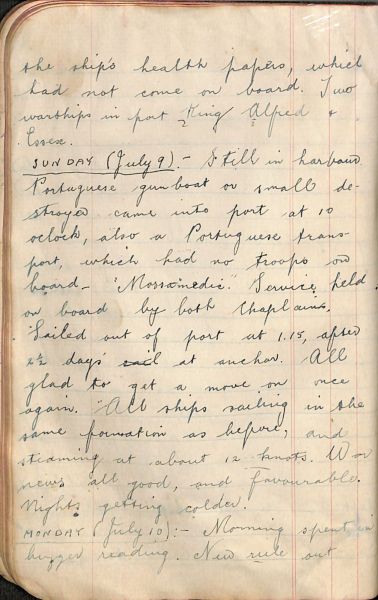 the ship's health papers, which
had not come on board. Two
warships in port King Alfred &
Essex.
SUNDAY (July 9).- Still in harbour
Portuguese gunboat or small de-
stroyer came into port at 10
oclock, also a Portuguese trans-
port, which had no troops on
board - "Mossamedic". Service held
on board by both Chaplains.
Sailed out of port at 1.15, after
2½ days' at anchor. All
glad to get a move on once
again. All ships sailing in the
same formation as before, and
steaming at about 12 knots. War
news all good, and favourable.
Nights getting colder.
MONDAY (July 10):- Morning spent in
reading. New rule out